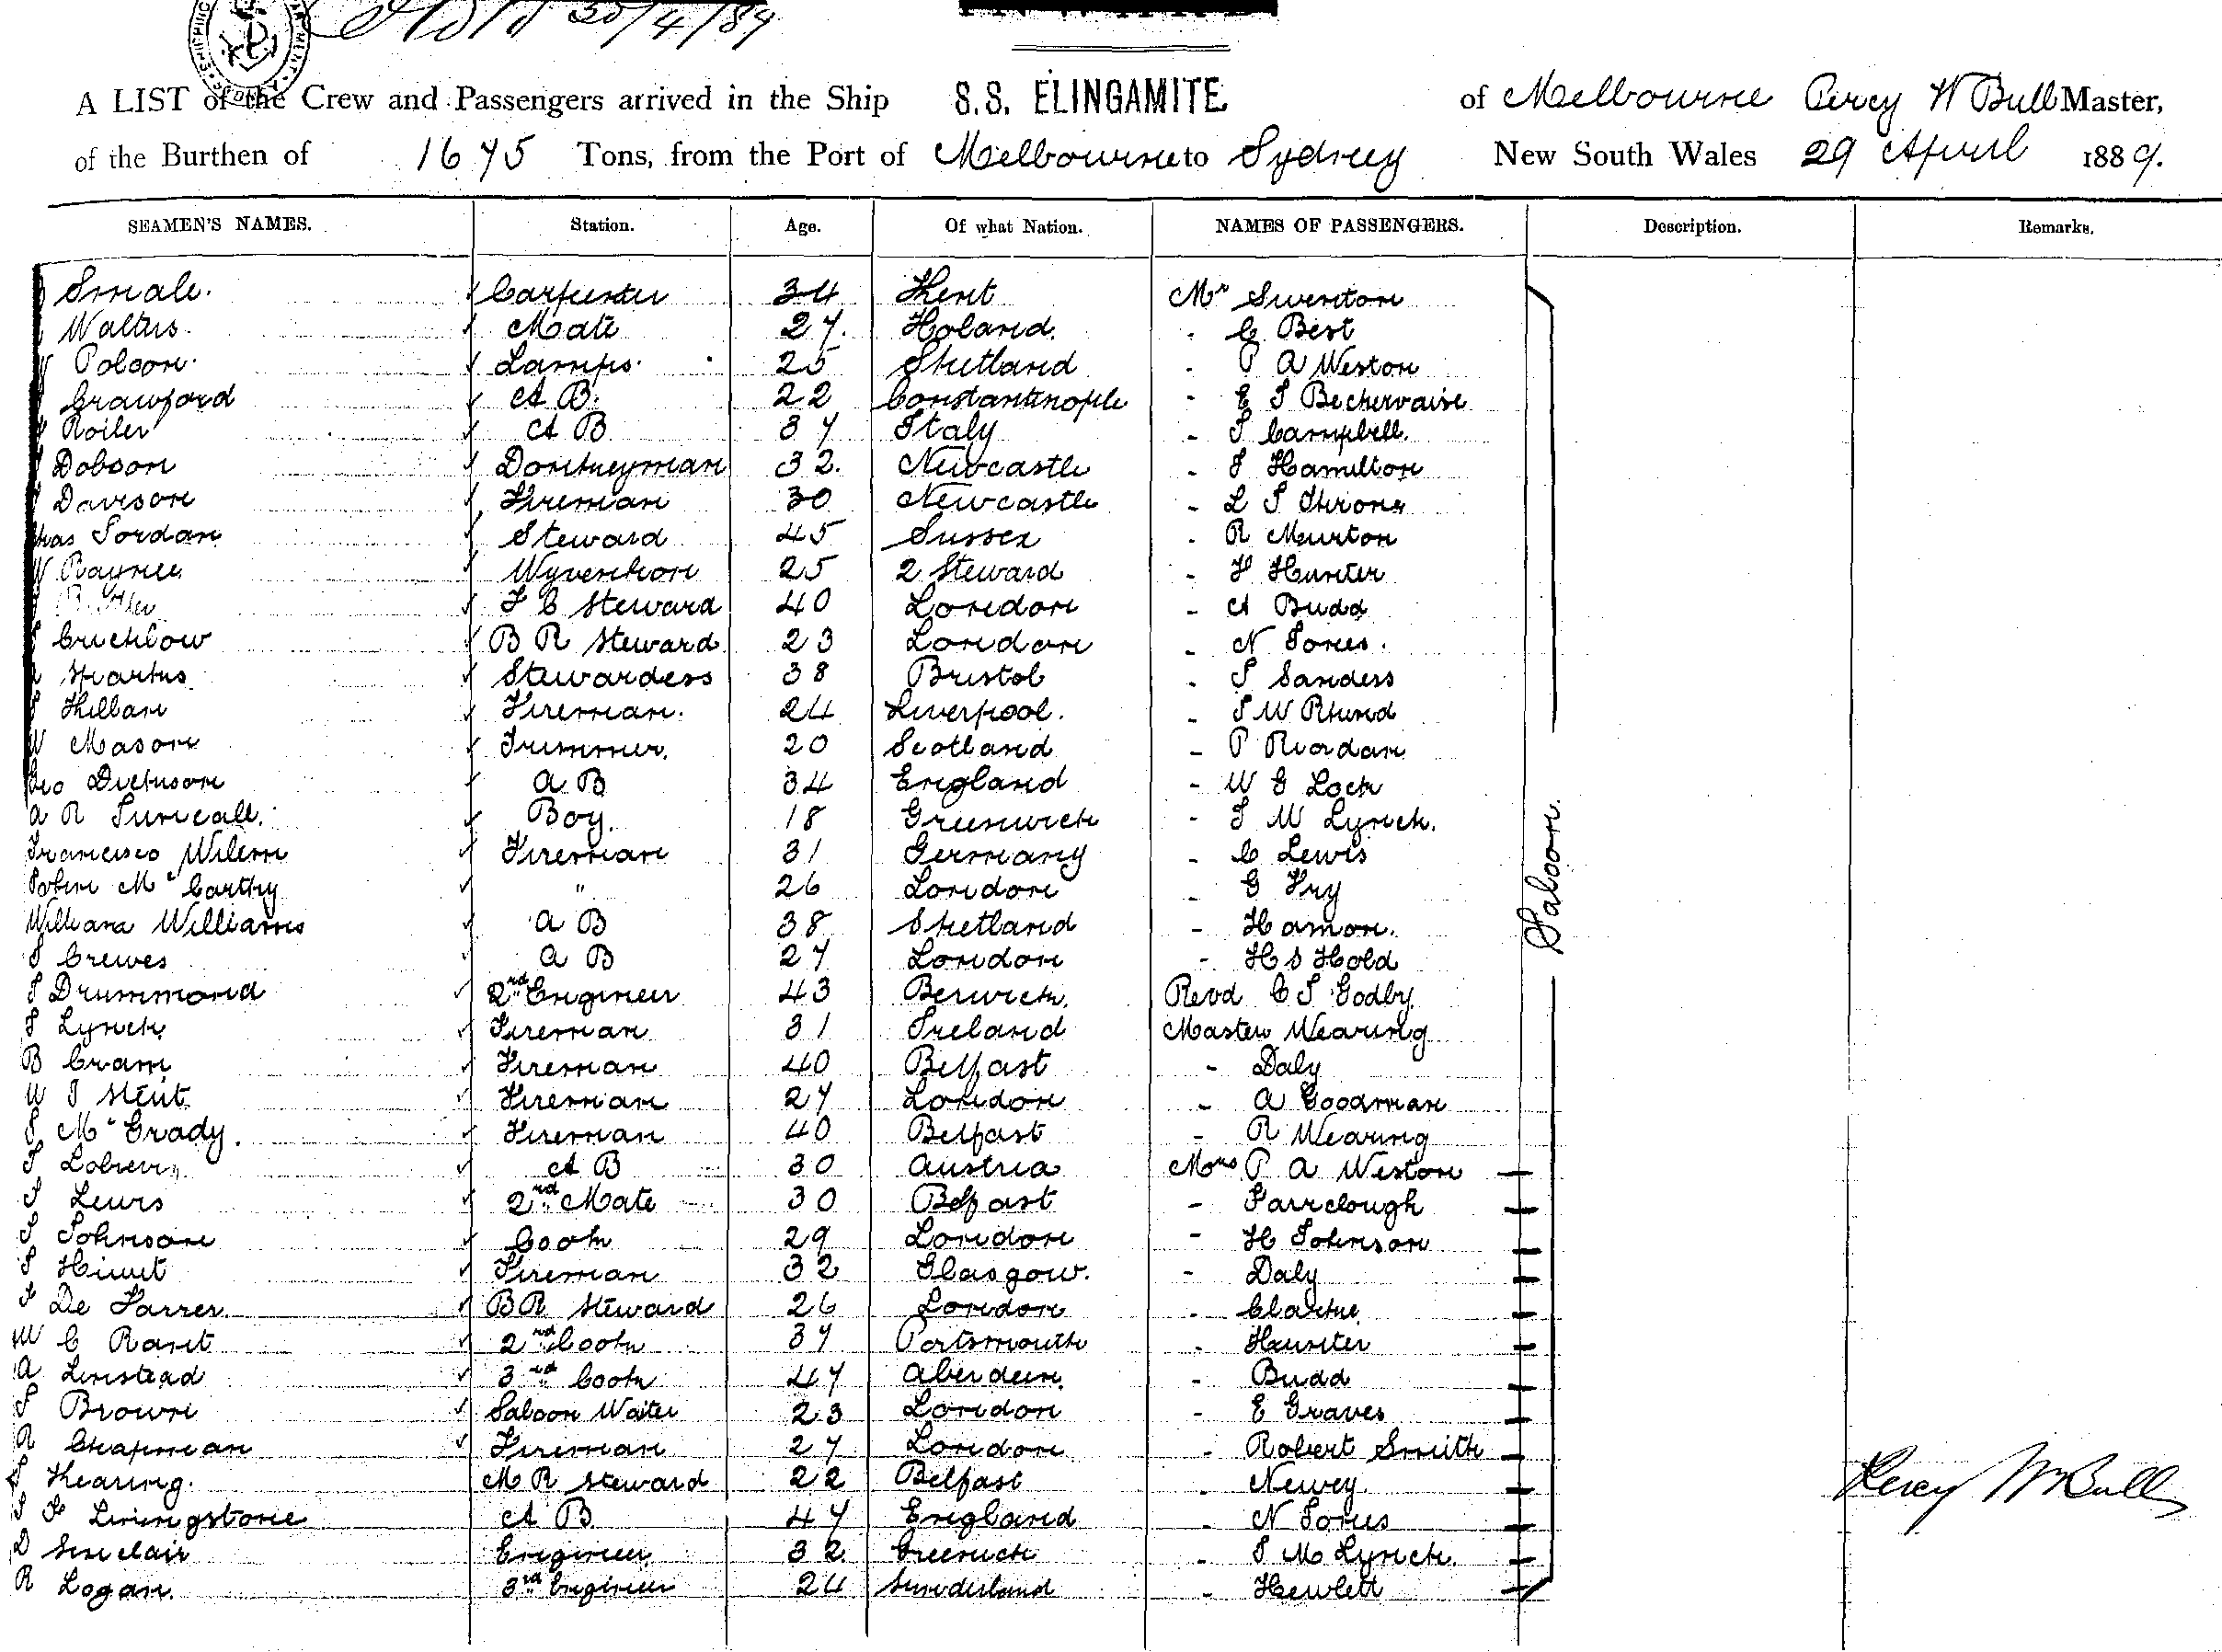 30/4/89
A LIST of the Crew and Passengers arrived in the Ship S.S. ELINGAMITE of Melbourne Percy W Bull Master,
of the Burthen of 1675 Tons, from the Port of Melbourne to Sydney New South Wales 29 April 1889.
SEAMEN'S NAMES. Station. Age. Of what Nation. NAMES OF PASSENGERS. Description. Remarks.
Smale. Carpenter 34 Kent Mr Swenton
Walters. Mate 27. Holand. - C Best
Polson. Lamps. 25 Shetland - P A Weston
Crawford A B. 22 Constantinople - E J Bechervaise
Roiler A B 37 Italy - J Campbell.
Dobson Donkeyman 32. Newcastle - J Hamilton
Davison Fireman 30 Newcastle - L J
Jordan Steward 45 Sussex - R Murton
W Rayner Wyvenhon 25 2 Steward - F Hunter
F C Steward 40 London - A Budd
Cruchlow B R Steward 23 London - N Jones.
Stewardess 38 Bristol - J Sanders
Killan Fireman. 24 Liverpool. - J W Rhund
W Mason Trimmer. 20 Scotland - P Riordan
Geo Dickinson A B 34 England - W G Lock
A R Boy. 18 Greenwich - J W Lynch.
Francisco Wilem Fireman 31 Germany - C Lewis
John McCarthy " 26 London - G Fry
William Williams A B 38 Shetland - Hamon.
J Crewes A B 27 London - H S Hold
J Drummond 2nd Engineer 43 Berwick. Revd C J Godby.
J Lynch Fireman 31 Ireland Master Wearing
B Cram Fireman 40 Belfast - Daly
W J Stent Fireman 27 London - A Goodman
J McGrady. Fireman 40 Belfast - R Wearing
J A B 30 Austria Mrs P A Weston
J Lewis 2nd Mate 30 Belfast - Farrclough
J Johnson Cook 29 London - H Johnson
J Fireman 32 Glasgow. - Daly
J De Farrer. B R Steward 26 London - Clarke
W C Rant 2nd Cook 37 Portsmouth - Hunter
A Linstead 3rd Cook 47 Aberdeen. - Budd
J Brown Saloon Waiter 23 London - E Graves
R Chapman Fireman 27 London - Robert Smith
J Kearing. M R Steward 22 Belfast - Newey
J F Livingstone A B 47 England - N Jones
D Sinclair Engineer 32 Greenock - J M Lynch.
R Logan. 3rd Engineer 24 Sunderland - Hewlett
Saloon.
Percy W Bull